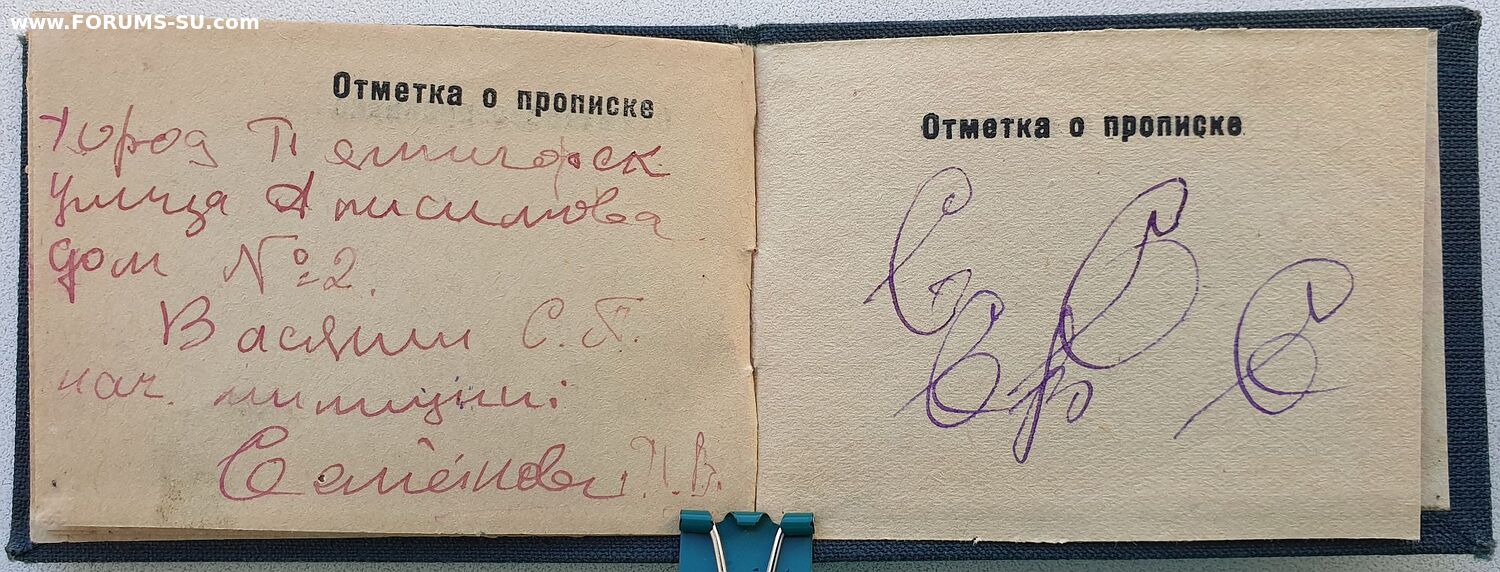 www.FORUMS-SU.com
Отметка о прописке
город Пятигорск
улица Анисимова
дом № 2.
Васяни С. П.
нач. милиции:
Семёнов И.В.
Отметка о прописке